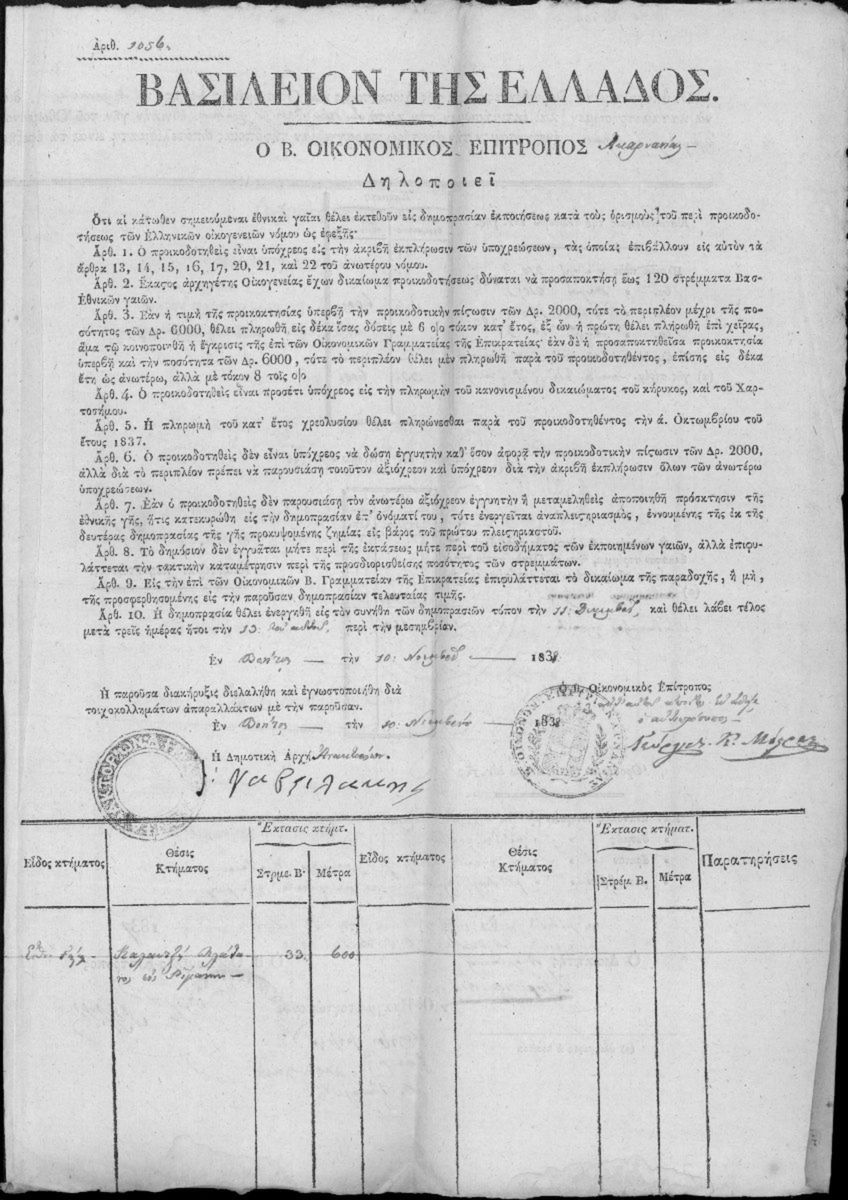 Ἀριθ. 1056.
ΒΑΣΙΛΕΙΟΝ ΤΗΣ ΕΛΛΑΔΟΣ.
Ο Β. ΟΙΚΟΝΟΜΙΚΟΣ ΕΠΙΤΡΟΠΟΣ Ακαρνανίας
Δηλοποιεῖ
Ὅτι αἱ κάτωθεν σημειούμεναι ἐθνικαὶ γαῖαι θέλει ἐκτεθοῦν εἰς δημοπρασίαν ἐκποιήσεως κατὰ τοὺς ὁρισμοὺς τοῦ περὶ προικοδο-
τήσεως τῶν Ἑλληνικῶν οἰκογενειῶν νόμου ὡς ἐφεξῆς·
Ἀρθ. 1. Ὁ προικοδοτηθεὶς εἶναι ὑπόχρεος εἰς τὴν ἀκριβῆ ἐκπλήρωσιν τῶν ὑποχρεώσεων, τὰς ὁποίας ἐπιβάλλουν εἰς αὐτὸν τὰ
ἄρθρα 13, 14, 15, 16, 17, 20, 21, καὶ 22 τοῦ ἀνωτέρου νόμου.
Ἀρθ. 2. Ἕκαστος ἀρχηγέτης Οἰκογενείας ἔχων δικαίωμα προικοδοτήσεως δύναται νὰ προσαποκτήσῃ ἕως 120 στρέμματα Βασ-
Ἐθνικῶν γαιῶν.
Ἀρθ. 3. Ἐὰν ἡ τιμὴ τῆς προικοκτησίας ὑπερβῇ τὴν προικοδοτικὴν πίστωσιν τῶν Δρ. 2000, τότε τὸ περιπλέον μέχρι τῆς πο-
σότητος τῶν Δρ. 6000, θέλει πληρωθῆ εἰς δέκα ἴσας δόσεις μὲ 6 ο)ο τόκον κατ' ἔτος, ἐξ ὧν ἡ πρώτη θέλει πληρωθῆ ἐπὶ χεῖρας,
ἅμα τῷ κοινοποιηθῇ ἡ ἔγκρισις τῆς ἐπὶ τῶν Οἰκονομικῶν Γραμματείας τῆς Ἐπικρατείας· ἐὰν δὲ ἡ προσαποκτηθεῖσα προικοκτησία
ὑπερβῇ καὶ τὴν ποσότητα τῶν Δρ. 6000, τότε τὸ περιπλέον θέλει μὲν πληρωθῆ παρὰ τοῦ προικοδοτηθέντος, ἐπίσης εἰς δέκα
ἔτη ὡς ἀνωτέρω, ἀλλὰ μὲ τόκον 8 τοῖς ο)ο
Ἀρθ. 4. Ὁ προικοδοτηθεὶς εἶναι προσέτι ὑπόχρεος εἰς τὴν πληρωμὴν τοῦ κανονισμένου δικαιώματος τοῦ κήρυκος, καὶ τοῦ Χαρ-
τοσήμου.
Ἀρθ. 5. Ἡ πληρωμὴ τοῦ κατ' ἔτος χρεολυσίου θέλει πληρώνεσθαι παρὰ τοῦ προικοδοτηθέντος τὴν ά. Ὀκτωμβρίου τοῦ
ἔτους 1837.
Ἀρθ. 6. Ὁ προικοδοτηθεὶς δὲν εἶναι ὑπόχρεος νὰ δώσῃ ἐγγυητὴν καθ' ὅσον ἀφορᾷ τὴν προικοδοτικὴν πίστωσιν τῶν Δρ. 2000,
ἀλλὰ διὰ τὸ περιπλέον πρέπει νὰ παρουσιάσῃ τοιοῦτον ἀξιόχρεον καὶ ὑπόχρεον διὰ τὴν ἀκριβῆ ἐκπλήρωσιν ὅλων τῶν ἀνωτέρω
ὑποχρεώσεων.
Ἀρθ. 7. Ἐὰν ὁ προικοδοτηθεὶς δὲν παρουσιάσῃ τὸν ἀνωτέρω ἀξιόχρεον ἐγγυητὴν ἢ μεταμεληθεὶς ἀποποιηθῇ πρόσκτησιν τῆς
ἐθνικῆς γῆς, ἥτις κατεκυρώθη εἰς τὴν δημοπρασίαν ἐπ' ὀνόματί του, τότε ἐνεργεῖται ἀναπλειστηριασμὸς, ἐννουμένης τῆς ἐκ τῆς
δευτέρας δημοπρασίας τῆς γῆς προκυψομένης ζημίας εἰς βάρος τοῦ πρώτου πλειστηριαστοῦ.
Ἀρθ. 8. Τὸ δημόσιον δὲν ἐγγυᾶται μήτε περὶ τῆς ἐκτάσεως μήτε περὶ τοῦ εἰσοδήματος τῶν ἐκποιημένων γαιῶν, ἀλλὰ ἐπιφυ-
λάττεται τὴν τακτικὴν καταμέτρησιν περὶ τῆς προσδιορισθείσης ποσότητος τῶν στρεμμάτων.
Ἀρθ. 9. Εἰς τὴν ἐπὶ τῶν Οἰκονομικῶν Β. Γραμματείαν τῆς Ἐπικρατείας ἐπιφυλάττεται τὸ δικαίωμα τῆς παραδοχῆς, ἢ μὴ,
τῆς προσφερθησομένης εἰς τὴν παροῦσαν δημοπρασίαν τελευταίας τιμῆς.
Ἀρθ. 10. Ἡ δημοπρασία θέλει ἐνεργηθῆ εἰς τὸν συνήθη τῶν δημοπρασιῶν τόπον τὴν 11: Δεκεμβρ, καὶ θέλει λάβει τέλος
μετὰ τρεῖς ἡμέρας ἤτοι τὴν 13: του αυτού, περὶ τὴν μεσημβρίαν.
Ἐν Βονίτζη τὴν 10: Νοεμβρίου 1838
Ἡ παροῦσα διακήρυξις διελαλήθη καὶ ἐγνωστοποιήθη διὰ
τοιχοκολλημάτων ἀπαραλλάκτων μὲ τὴν παροῦσαν.
Ἐν Βονίτζη τὴν 10: Νοεμβρίου 1838
Ὁ Β. Οἰκονομικὸς Ἐπίτροπος
Ἡ Δημοτικὴ Ἀρχὴ Ανακτορίων
Εἶδος κτήματος
Θέσις
Κτήματος
Ἔκτασις κτήματ.
Στρμε. Β· Μέτρα
Εἶδος κτήματος
Θέσις
Κτήματος
Ἔκτασις κτήματ.
Στρέμ. Β. Μέτρα
Παρατηρήσεις
33. 600